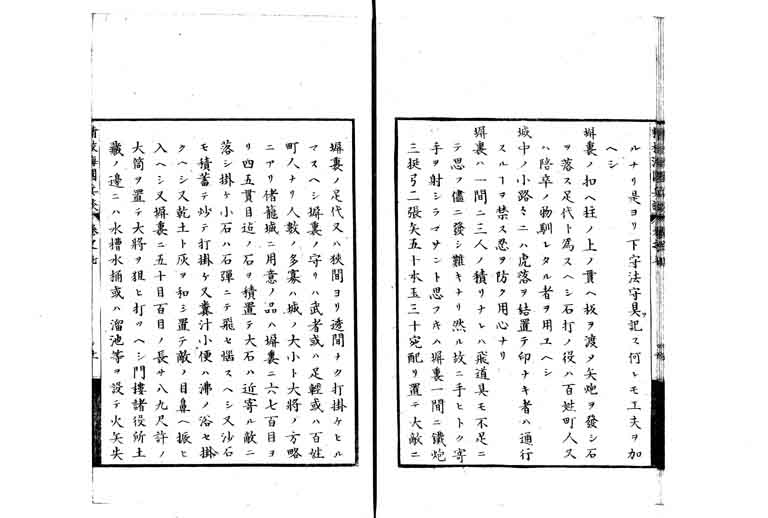 ルナリ是ヨリ下守法守具ヲ記ス何レモ工夫ヲ加
ヘシ
塀裏ノ扣ヘ柱ノ上ノ貫ヘ板ヲ渡メ矢炮ヲ發シ石
ヲ落ス足代ト為スヘシ石打ノ役ハ百姓町人又
ハ陪卒ノ物馴レタル者ヲ用ユヘシ
城中ノ小路々ニハ虎落ヲ結置テ印ナキ者ハ通行
スルヿヲ禁ス忍ヲ防ク用心ナリ
塀裏ハ一間ニ三人ノ積リナレハ飛道具モ不足ニ
テ思フ儘ニ發シ難キナリ然ル故ニ手ヒトク寄
手ヲ射シラマサント思フキハ塀裏一間ニ鐵炮
三挺弓二張矢五十本玉三十宛配リ置テ大敵ニ
塀裏ノ足代又ハ狭間ヨリ透間ナク打掛ケヒル
マスヘシ塀裏ノ守リハ武者或ハ足輕或ハ百姓
町人ナリ人數ノ多寡ハ城ノ大小ト大将ノ方略
ニアリ偖籠城ニ用意ノ品ハ塀裏ニ六七百目ヨ
リ四五貫目迄ノ石ヲ積置テ大石ハ近寄ル敵ニ
落シ掛ケ小石ハ石彈ニテ飛セ惱スヘシ又沙石
モ積蓄テ炒テ打掛ケ又糞汁小便ハ沸ノ浴セ掛
クヘシ又乾土ト灰ヲ和シ置テ敵ノ目鼻ヘ振ヒ
入ヘシ又塀裏ニ五十目百目ノ長サ八九尺許ノ
大筒ヲ置テ大將ヲ狙ヒ打ツヘシ門樓諸役所土
藏ノ邊ニハ水槽水桶或ハ溜池等ヲ設テ火矢失